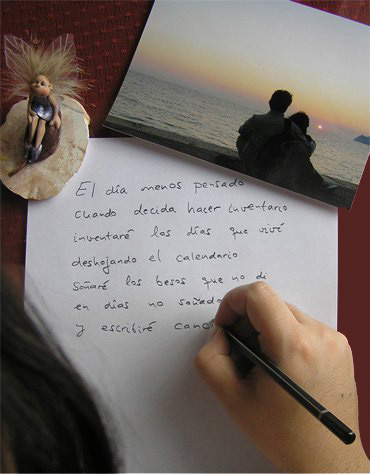 El día menos pensado
cuando decida hacer inventario
inventaré los días que viví
deshojando el calendario
Soñaré los besos que no di
en días no soñados
y escribiré